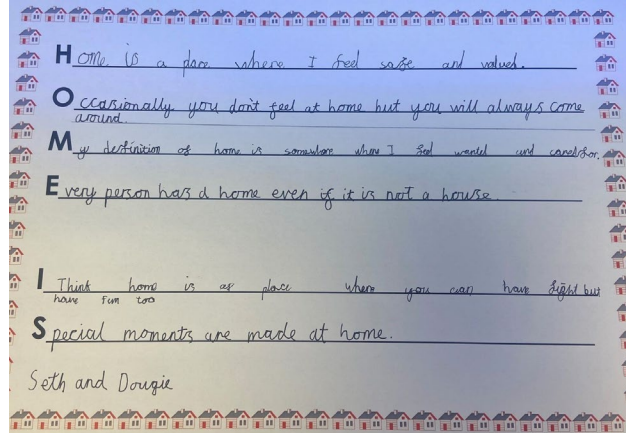 Home is a place where I feel safe and valued.
Occasionally you don't feel at home but you will always come
around.
My definition of home is somewhere where I feel wanted and cared for.
Every person has a home even if it is not a house.
I Think home is as place where you can have fight but
have fun too
Special moments are made at home.
Seth and Dougie